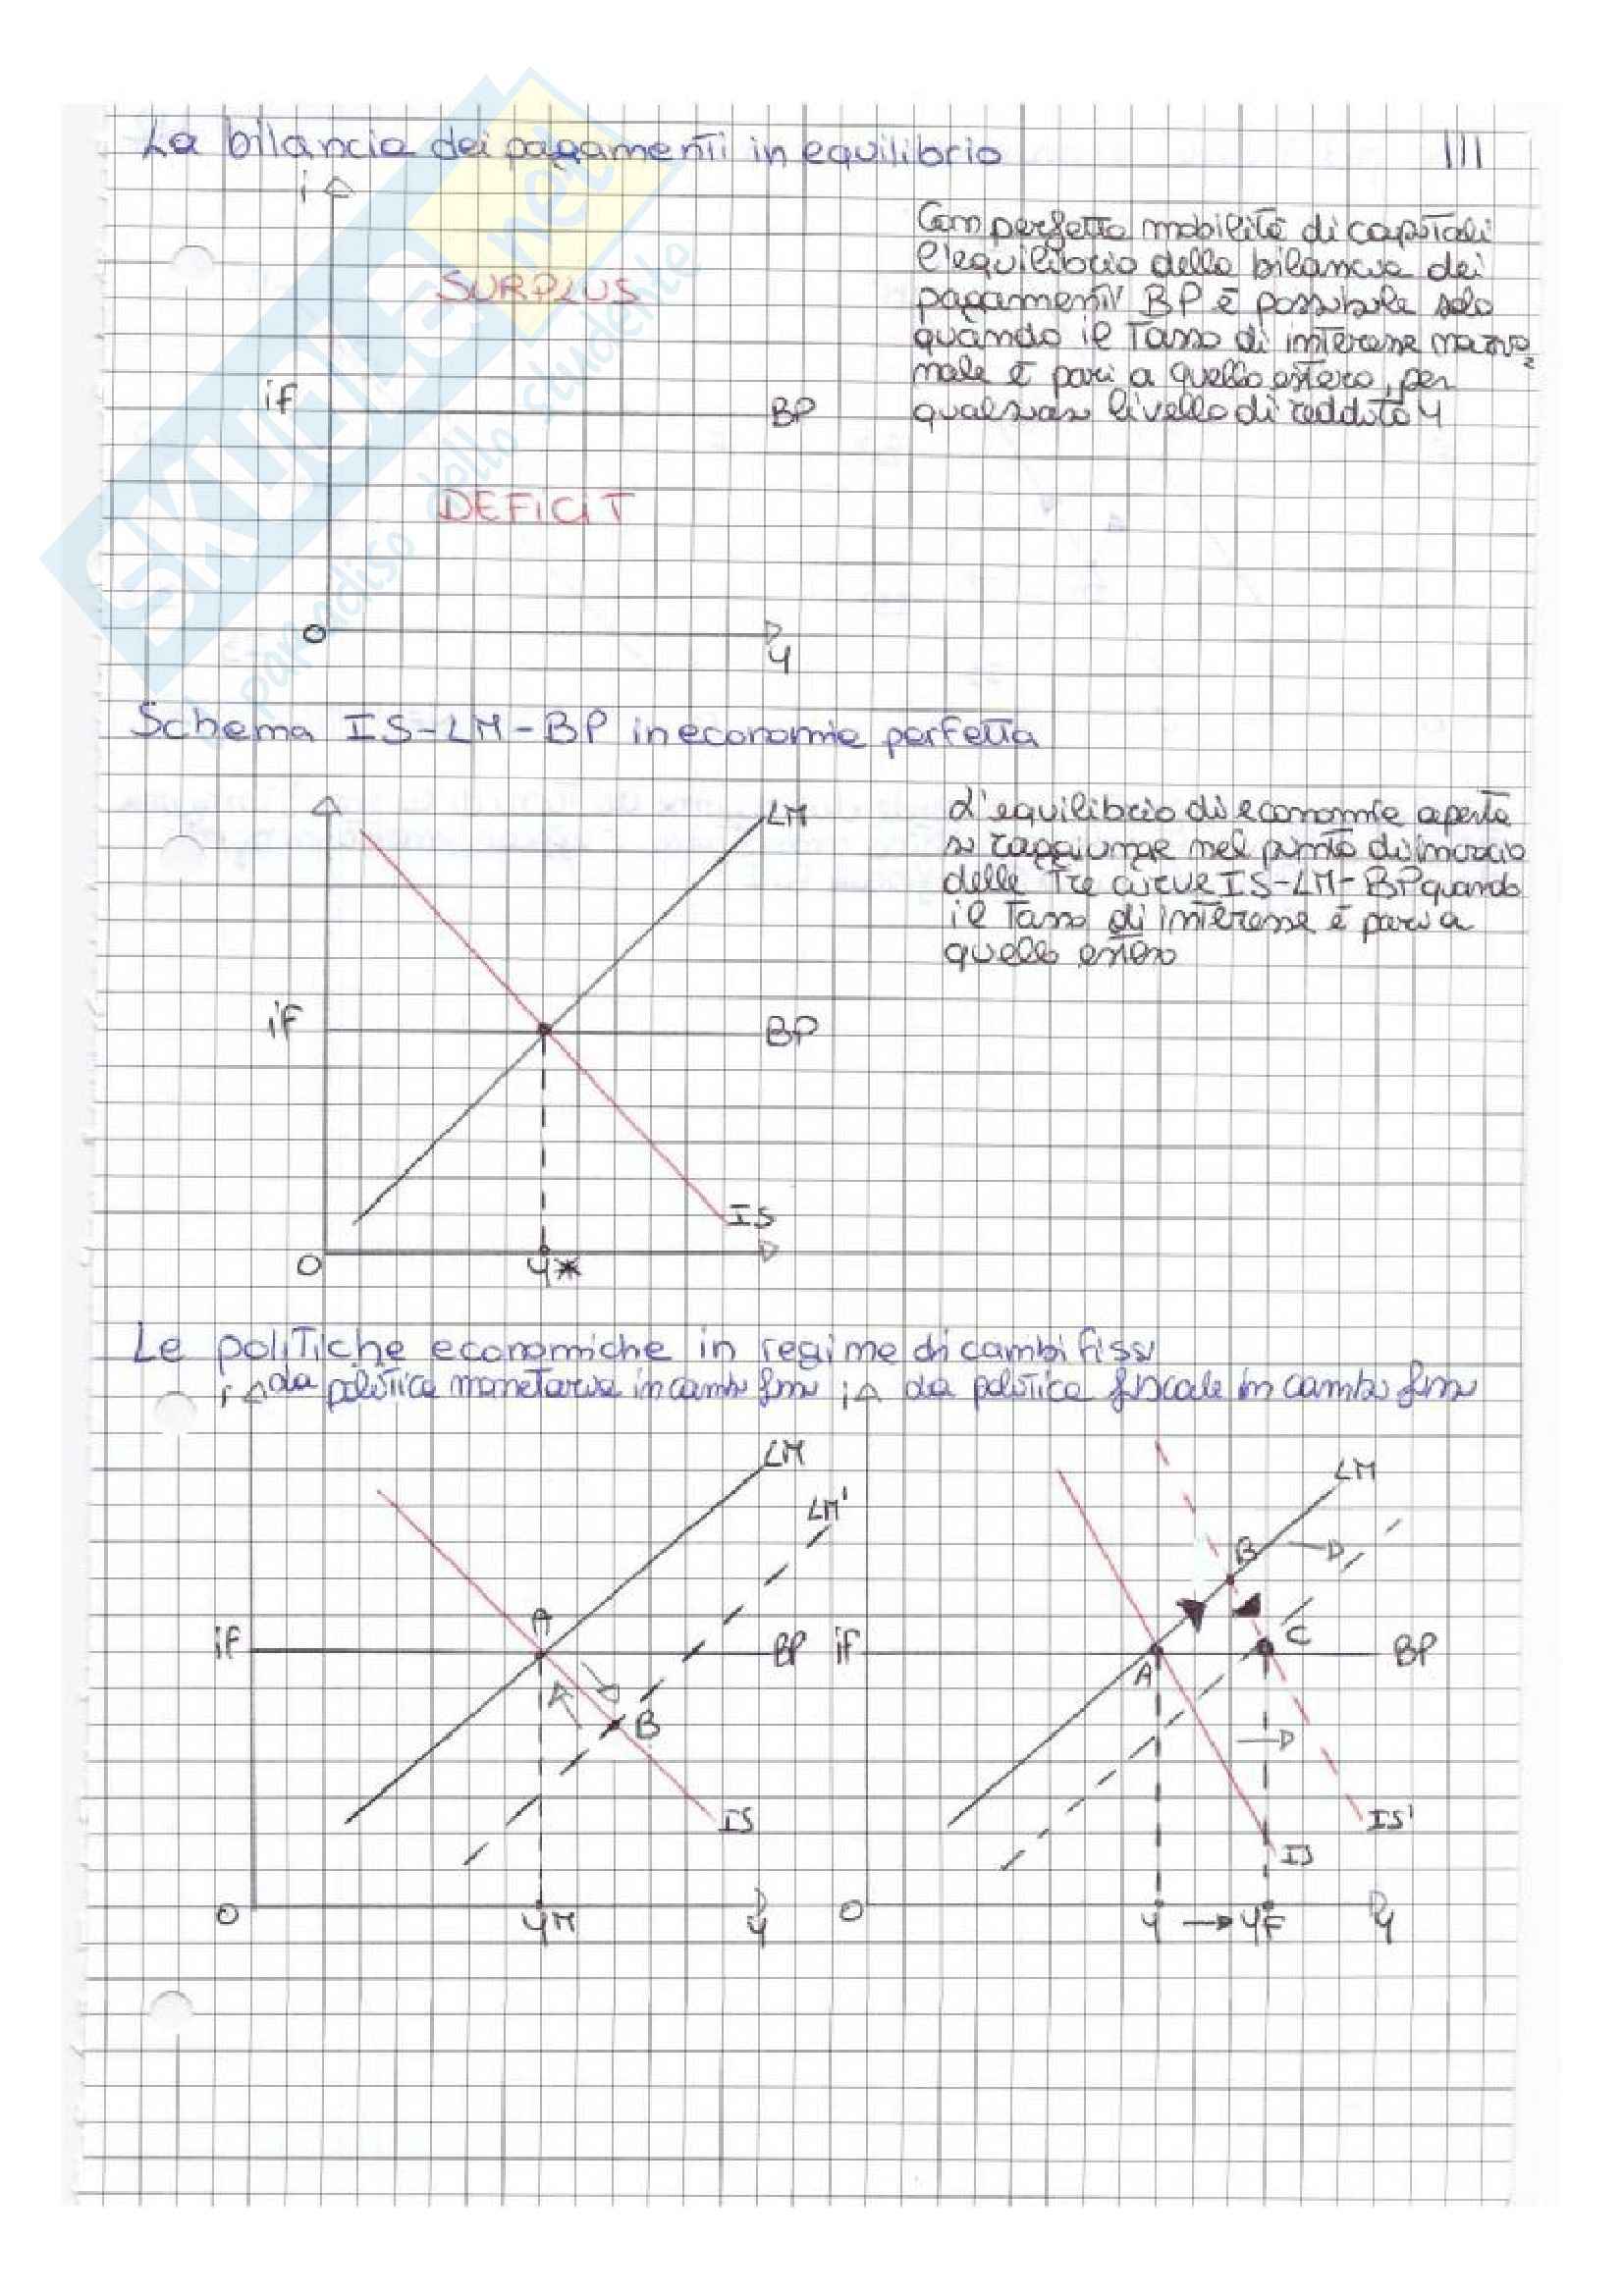 La bilancia dei pagamenti in equilibrio
III
i
Con perfetta mobilità di capitali
l'equilibrio della bilancia dei
pagamenti BP è possibile solo
quando il tasso di interesse nazio
nale è pari a quello estero, per
qualsiasi livello di reddito Y
SURPLUS
if
BP
DEFICIT
O
Y
SKUOLA.net
il paradiso dello studente
Schema IS-LM-BP in economie perfetta
LM
L'equilibrio di economie aperte
si raggiunge nel punto di incrocio
delle tre curve IS-LM-BP quando
il tasso di interesse è pari a
quello estero
if
BP
IS
O
Y*
Le politiche economiche in regime di cambi fissi
i
La politica monetaria in cambi fissi
i
La politica fiscale in cambi fissi
LM
LM'
A
if
BP
B
IS
O
YM
Y
LM
B
if
C
BP
A
IS'
IS
O
Y → YF
Y